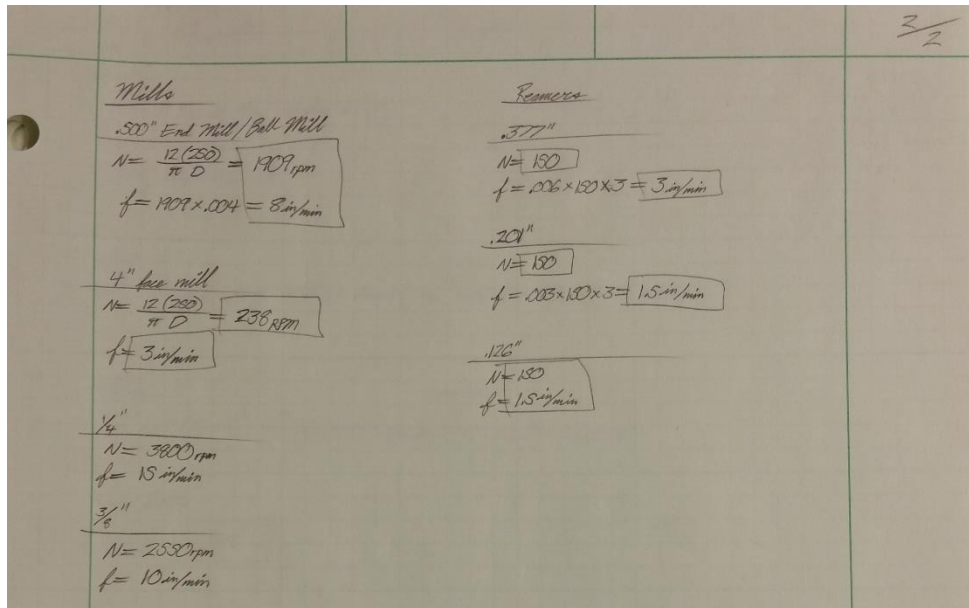 2/2
Mills
.500" End Mill/Ball Mill
N= 12(250)/π D = 1909 rpm
f= 1909 x .004 = 8 in/min
4" face mill
N= 12(250)/π D = 238 RPM
f= 3 in/min
1/4"
N= 3800 rpm
f= 15 in/min
3/8"
N= 2550 rpm
f= 10 in/min
Reamers
.377"
N= 150
f= .006 x 150 x 3 = 3 in/min
.201"
N= 150
f= .003 x 150 x 3 = 1.5 in/min
.126"
N= 150
f= 1.5 in/min